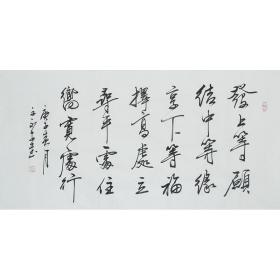 發上等願
結中等緣
享下等福
擇高處立
尋平處住
嚮寬處行
庚子年月